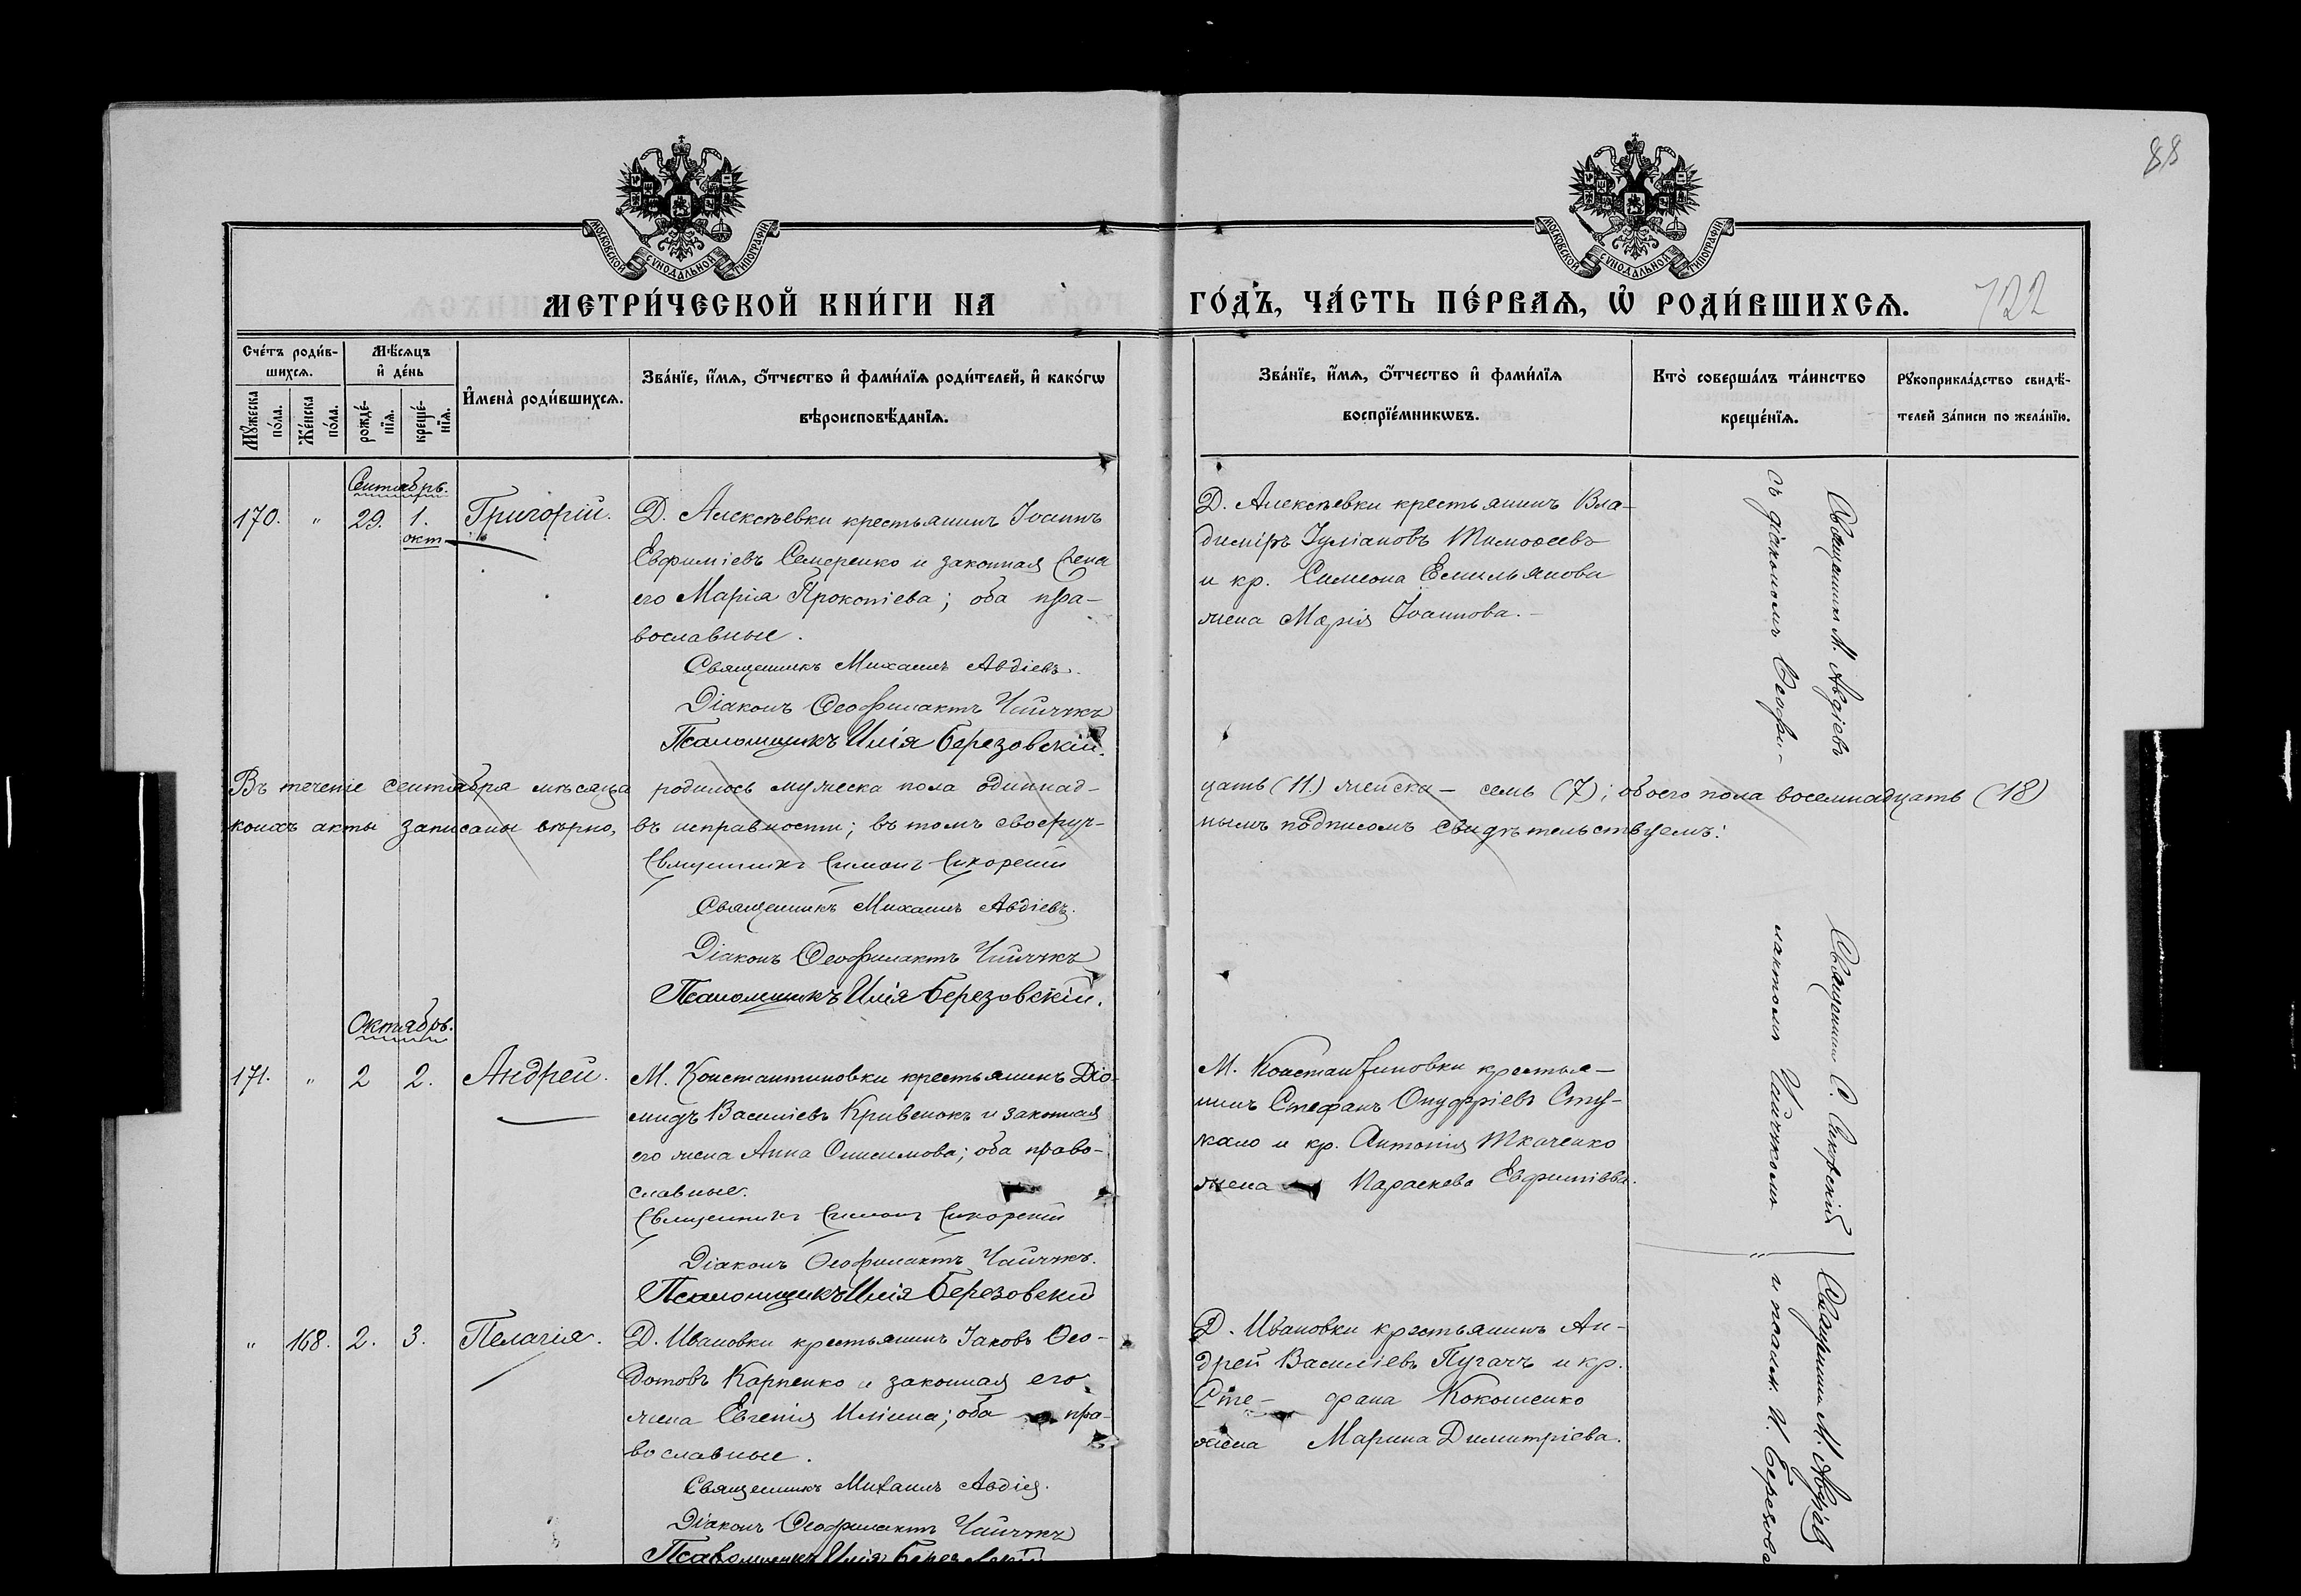 88
МОСКОВСКОЙ СѴНОДАЛЬНОЙ ТИПОГРАФІИ
МОСКОВСКОЙ СѴНОДАЛЬНОЙ ТИПОГРАФІИ
МЕТРИ́ЧЕСКОЙ КНИ́ГИ НА
ГО́ДЪ, ЧА́СТЬ ПЕ́РВАѦ, Ѡ҆ РОДИ́ВШИХСѦ.
122
Сче́тъ роди́в-
шихсѧ.
Мѣ́сѧцъ
и҆ де́нь
Мꙋ́жеска
по́ла.
Же́нска
по́ла.
рожде́-
нїѧ.
креще́-
нїѧ.
И҆мена̀ роди́вшихсѧ.
Зва́нїе, и҆́мѧ, ѻ҆́тчество и҆ фами́лїѧ роди́телей, и҆ како́гѡ
вѣроисповѣ́данїѧ.
Зва́нїе, и҆́мѧ, ѻ҆́тчество и҆ фами́лїѧ
воспрїе́мникѡвъ.
Кто̀ соверша́лъ та́инство
креще́нїѧ.
Рꙋкоприкла́дство свидѣ́-
телей за́писи по жела́нїю.
Сентябрь.
170. " 29. 1. окт. Григорій.
Д. Алексѣевки крестьянинъ Іоаннъ
Евфиміевъ Семеренко и законная жена
его Марія Прокопіева; оба пра-
вославные.
Священникъ Михаилъ Авдіевъ.
Діаконъ Ѳеофилактъ Чайчукъ
Псаломщикъ Илія Березовскій.
Д. Алексѣевки крестьянинъ Вла-
диміръ Іуліановъ Тимоѳеевъ
и кр. Симеона Емильянова
жена Марія Іоаннова.-
Священникъ М. Авдіевъ
съ діакономъ Ѳеофи-
Въ теченіе сентября мѣсяца родилось мужеска пола одиннад-
цать (11.) женска - семь (7); обоего пола восемнадцать (18)
коихъ акты записаны вѣрно, въ исправности; въ томъ своеруч-
нымъ подписомъ свидѣтельствуемъ:
Священникъ Симонъ Сикорскій
Священникъ Михаилъ Авдіевъ.
Діаконъ Ѳеофилактъ Чайчукъ
Псаломщикъ Илія Березовскій.
Октябрь.
171. " 2 2. Андрей.
М. Константиновки крестьянинъ Діо-
мидъ Василіевъ Кривенокъ и законная
его жена Анна Онисимова; оба право-
славные.
Священникъ Симонъ Сикорскій
Діаконъ Ѳеофилактъ Чайчукъ.
Псаломщикъ Илія Березовскій
М. Константиновки крестья-
нинъ Стефанъ Онуфріевъ Сту-
кало и кр. Антонія Ткаченко
жена Параскева Евфиміева.
Священникъ С. Сикорскій
лактомъ Чайчукомъ "
" 168. 2. 3. Пелагія.
Д. Ивановки крестьянинъ Іаковъ Ѳео-
дотовъ Карпенко и законная его
жена Евгенія Иліина; оба пра-
вославные.
Священникъ Михаилъ Авдіевъ.
Діаконъ Ѳеофилактъ Чайчукъ
Псаломщикъ Илія Березовскій
Д. Ивановки крестьянинъ Ан-
дрей Василіевъ Пугачъ и кр.
Сте- фана Кокошенко
жена Марина Димитріева.
Священникъ М. Авдіевъ
и псалм. И. Березовс